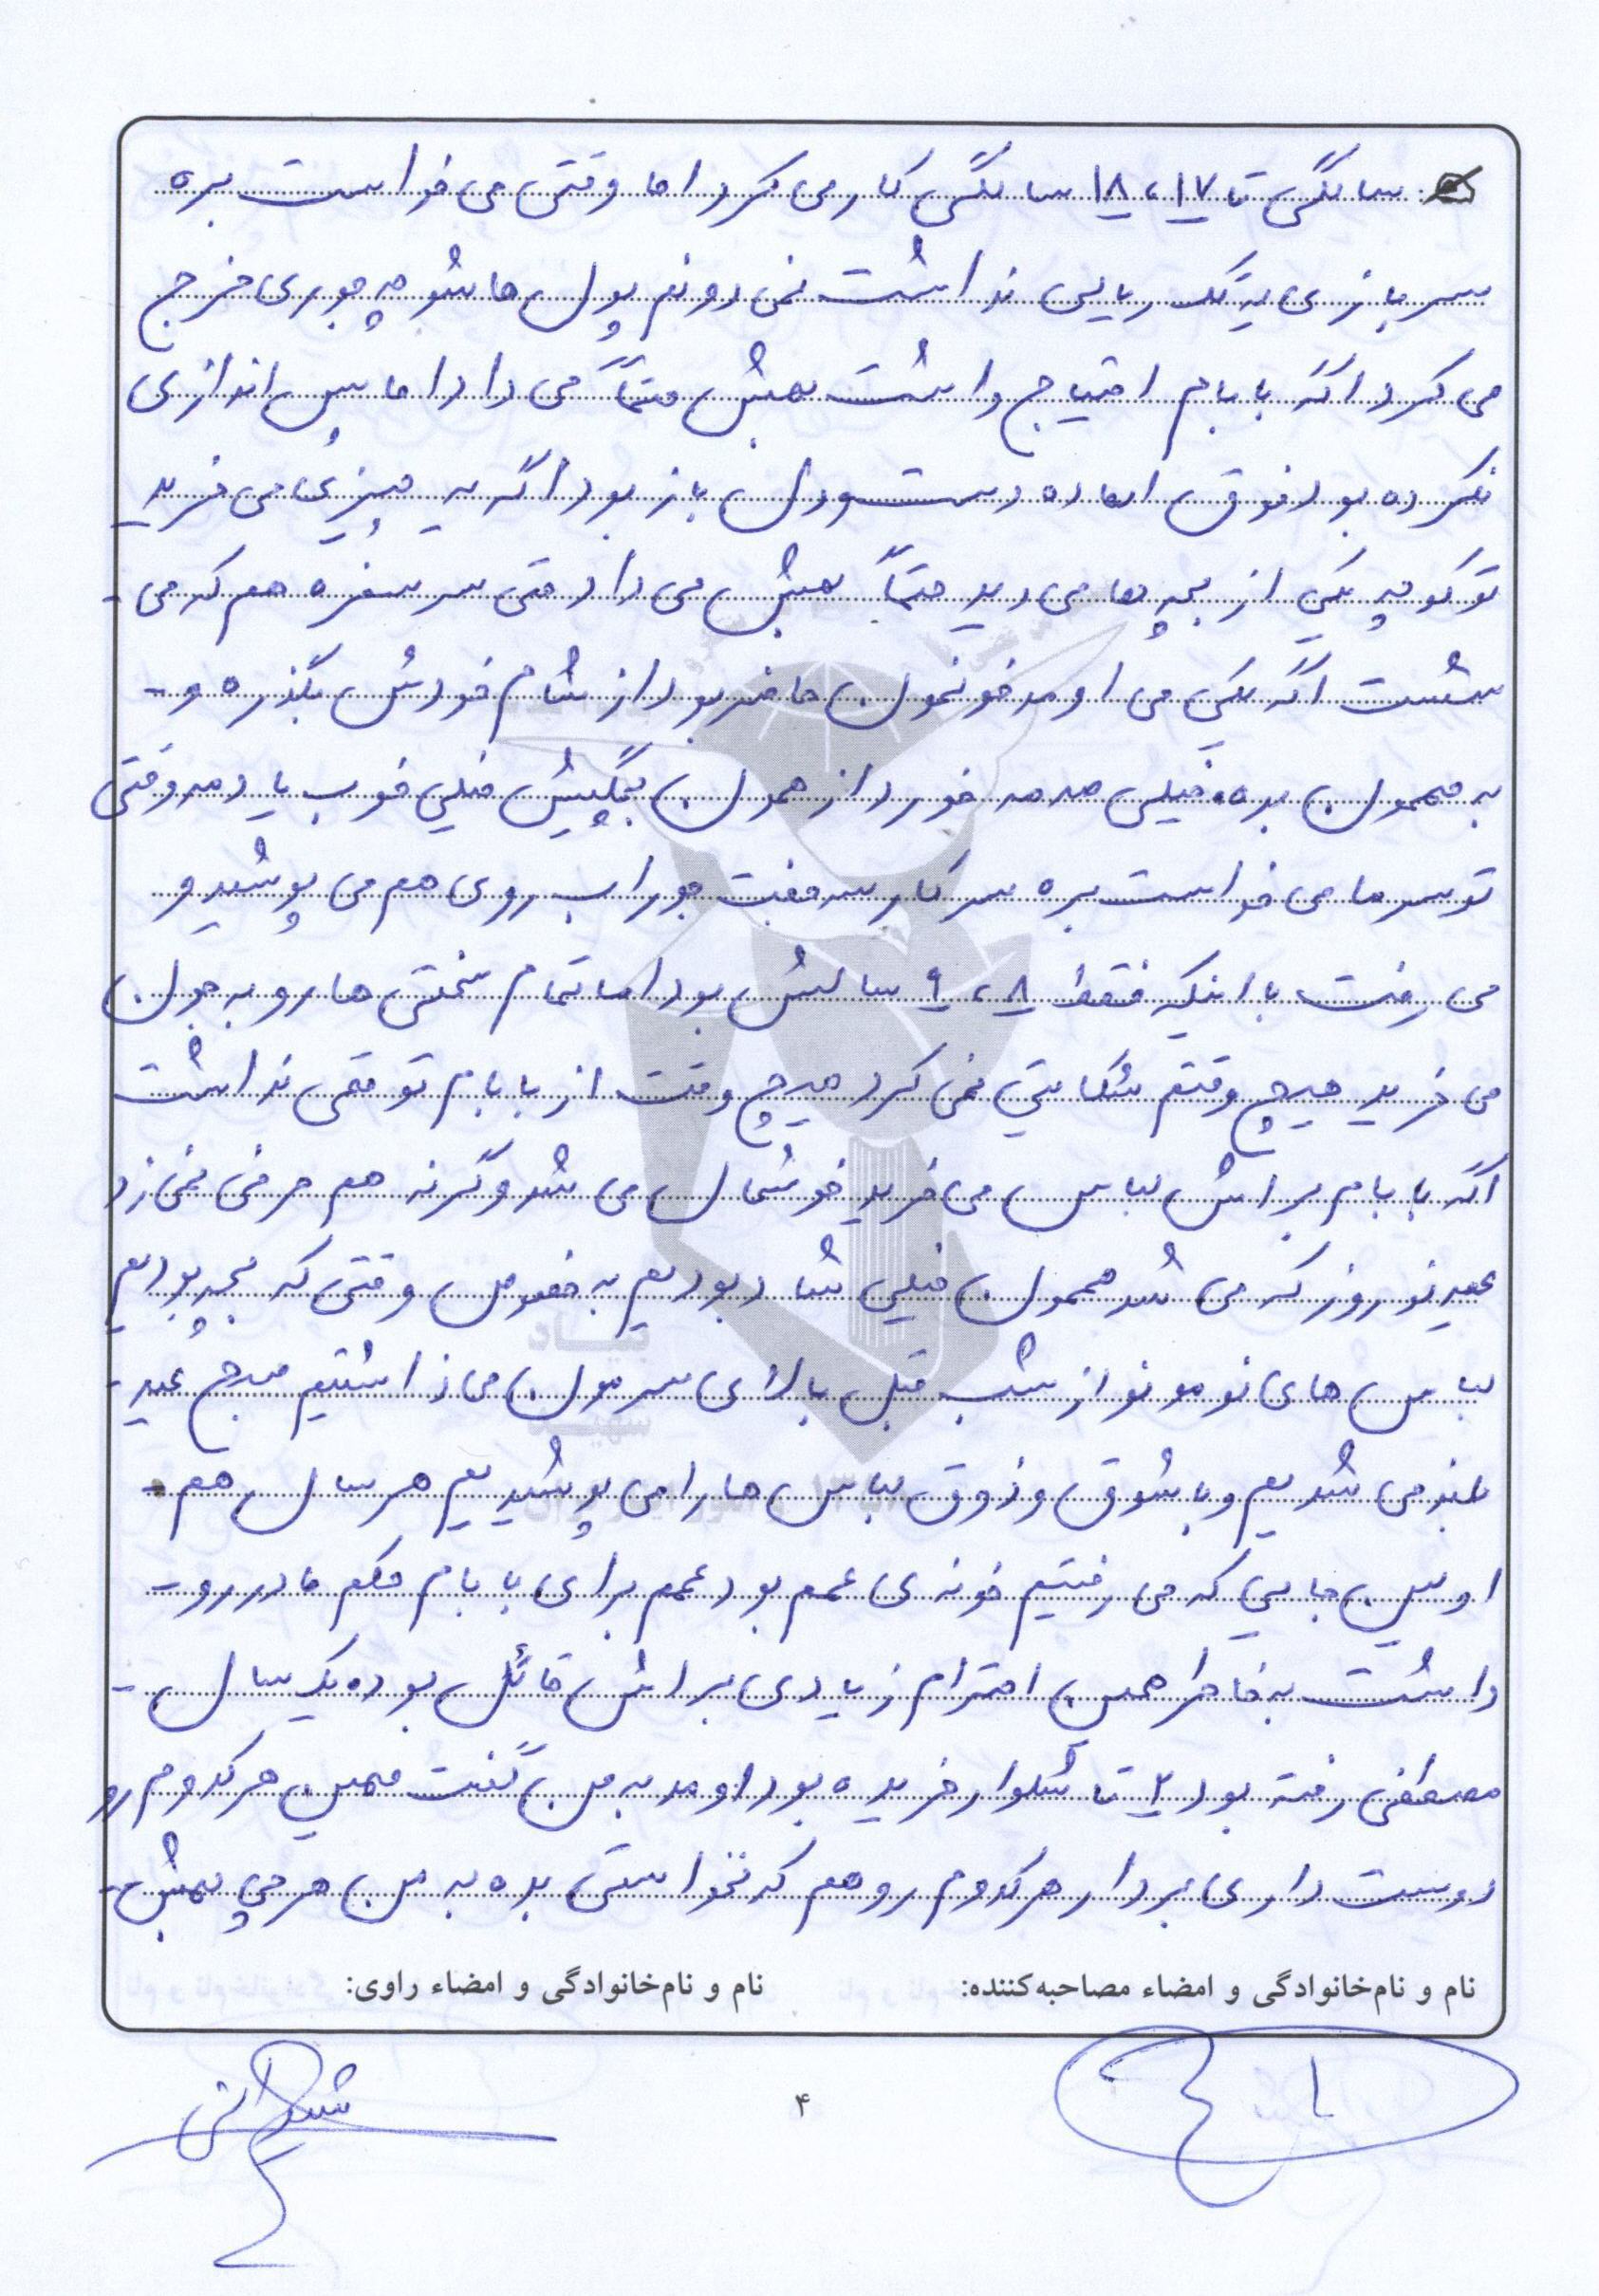 سالگی تا ۱۷، ۱۸ سالگی کار می کرد اما وقتی می خواست بره
سربازی یه تک ریالی نداشت نمی دونم پول هاشو چه جوری خرج
می کرد اگه بابام احتیاج داشت بهش حتماً می داد اما پس اندازی
نکرده بود فوق العاده دست و دل باز بود اگه یه چیزی می خرید
تو کوچه یکی از بچه ها می دید حتماً بهش می داد حتی سر سفره هم که می -
شست اگه یکی می اومد خونمون حاضر بود از شام خودش بگذره و -
به مهمون بده، خیلی صدمه خورد از همون بچگیش خیلی خوب یادمه وقتی
تو سرما می خواست بره سر کار سه جفت جوراب روی هم می پوشید و
می رفت با اینکه فقط ۸، ۹ سالش بود اما تمام سختی ها رو به جون
می خرید هیچ وقتم شکایتی نمی کرد هیچ وقت از بابام توقعی نداشت
اگه بابام براش لباس می خرید خوشحال می شد وگرنه هم حرفی نمی زد
عید نوروز که می شد هممون خیلی شاد بودیم به خصوص وقتی که بچه بودیم
لباس های نو مونو از شب قبل بالای سرمون می ذاشتیم صبح عید -
بلند می شدیم و با شوق و ذوق لباس ها را می پوشیدیم هر سال هم -
اولین جایی که می رفتیم خونه ی عمم بود عمم برای بابام حکم مادر رو -
داشت به خاطر همین احترام زیادی براش قائل بوده یک سال -
مصطفی رفته بود ۲ تا شلوار خریده بود اومد به من گفت مهین هر کدوم رو
دوست داری بردار هر کدوم رو هم که نخواستی بده به من هر چی بهش -
نام و نام‌خانوادگی و امضاء مصاحبه‌کننده:
نام و نام‌خانوادگی و امضاء راوی:
۴